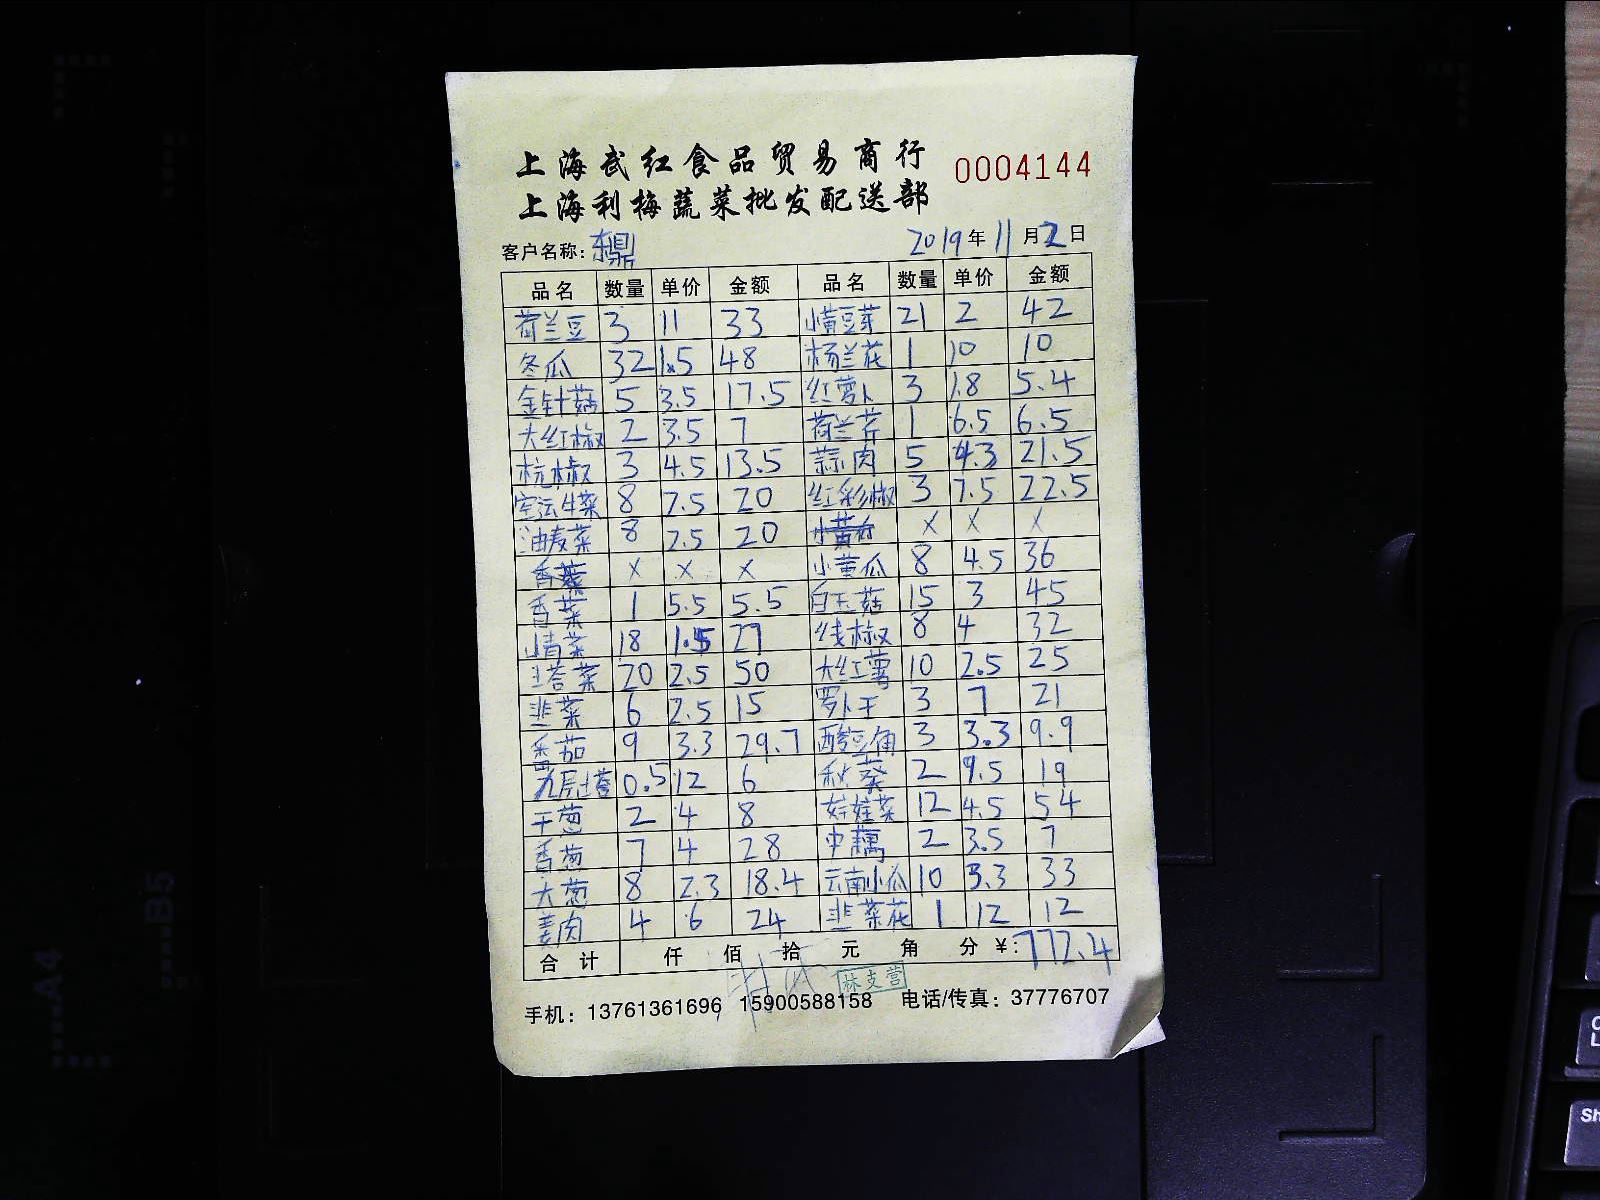 上海武红食品贸易商行
0004144
上海利梅蔬菜批发配送部
客户名称: 东鼎 2019年11月2日
品名 数量 单价 金额 品名 数量 单价 金额
荷兰豆 3 11 33 小黄豆芽 21 2 42
冬瓜 32 1.5 48 杨兰花 1 10 10
金针菇 5 3.5 17.5 红萝卜 3 1.8 5.4
大红椒 2 3.5 7 荷兰芹 1 6.5 6.5
杭椒 3 4.5 13.5 蒜肉 5 4.3 21.5
空运生菜 8 2.5 20 红彩椒 3 7.5 22.5
油麦菜 8 2.5 20 x x x
x x x 小黄瓜 8 4.5 36
香菜 1 5.5 5.5 白玉菇 15 3 45
小青菜 18 1.5 27 线椒 8 4 32
塔菜 20 2.5 50 大红薯 10 2.5 25
韭菜 6 2.5 15 罗卜干 3 7 21
番茄 9 3.3 29.7 酸豆角 3 3.3 9.9
九层塔 0.5 12 6 秋葵 2 9.5 19
干葱 2 4 8 娃娃菜 12 4.5 54
香葱 7 4 28 中藕 2 3.5 7
大葱 8 2.3 18.4 云南小瓜 10 3.3 33
姜肉 4 6 24 韭菜花 1 12 12
合计 仟 佰 拾 元 角 分 ¥: 772.4
林支营
手机: 13761361696 15900588158 电话/传真: 37776707
A4
B5